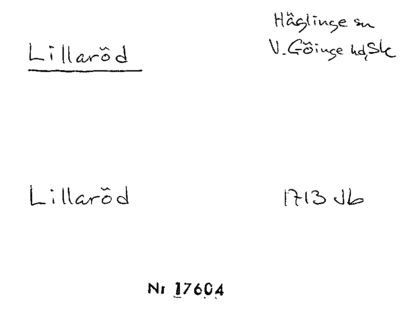 Häglinge sn
Lillaröd V. Göinge hd, Sk
Lillaröd 1713 Jb
Nr 17604